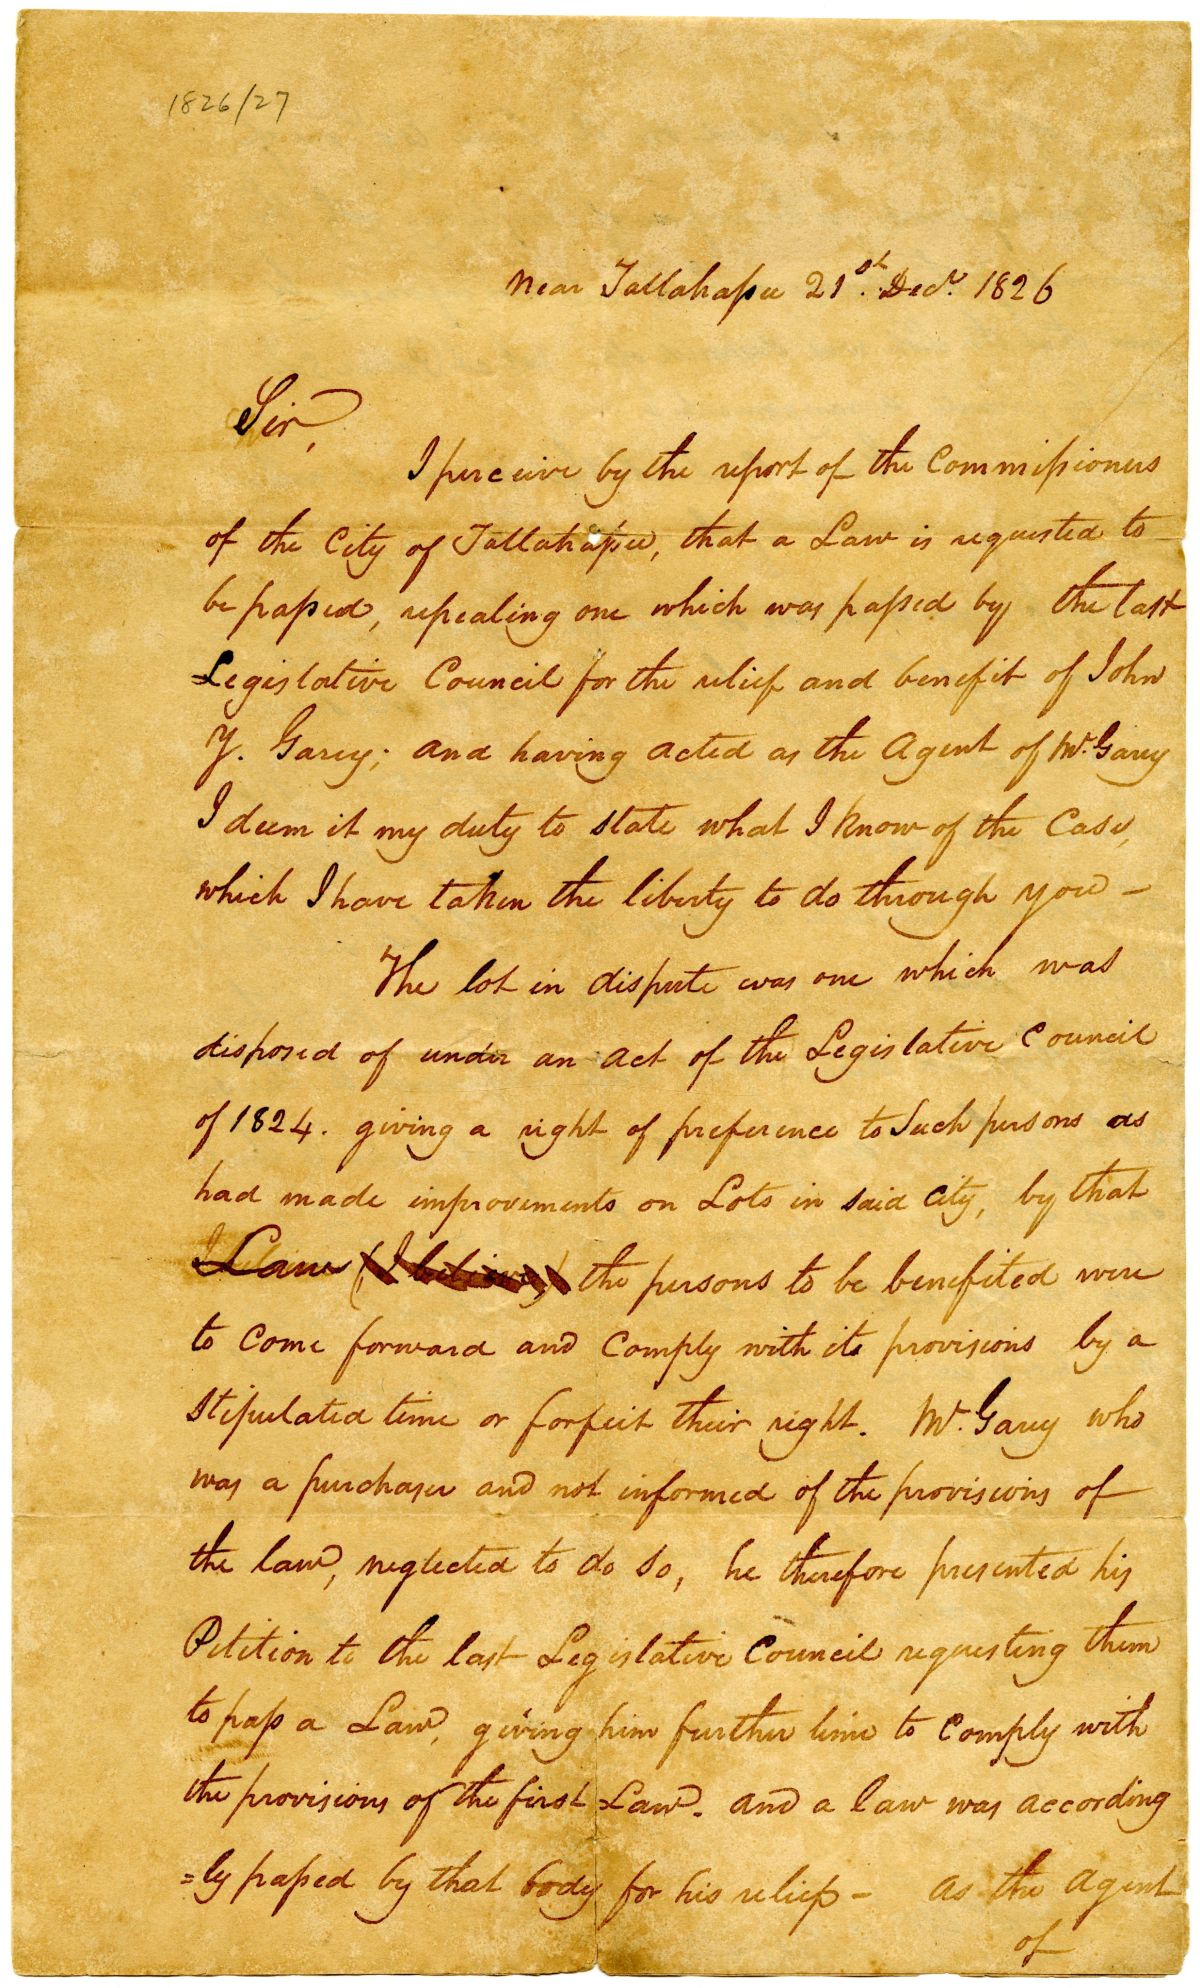 1826/27
Near Tallahassee 21st. Decr. 1826
Sir,
I perceive by the report of the Commissioners
of the City of Tallahassee, that a Law is requested to
be passed, repealing one which was passed by the last
Legislative Council for the relief and benefit of John
Y. Garey; and having acted as the Agent of Mr. Garey
I deem it my duty to state what I know of the Case,
which I have taken the liberty to do through you –
The lot in dispute was one which was
disposed of under an act of the Legislative Council
of 1824. giving a right of preference to Such persons as
had made improvements on Lots in said City, by that
Law (I believe) the persons to be benefited were
to Come forward and Comply with its provisions by a
stipulated time or forfeit their right. Mr. Garey who
was a purchaser and not informed of the provisions of
the law, neglected to do so, he therefore presented his
Petition to the last Legislative Council requesting them
to pass a Law, giving him further time to Comply with
the provisions of the first Law. and a law was according
=ly passed by that body for his relief – as the Agent
of